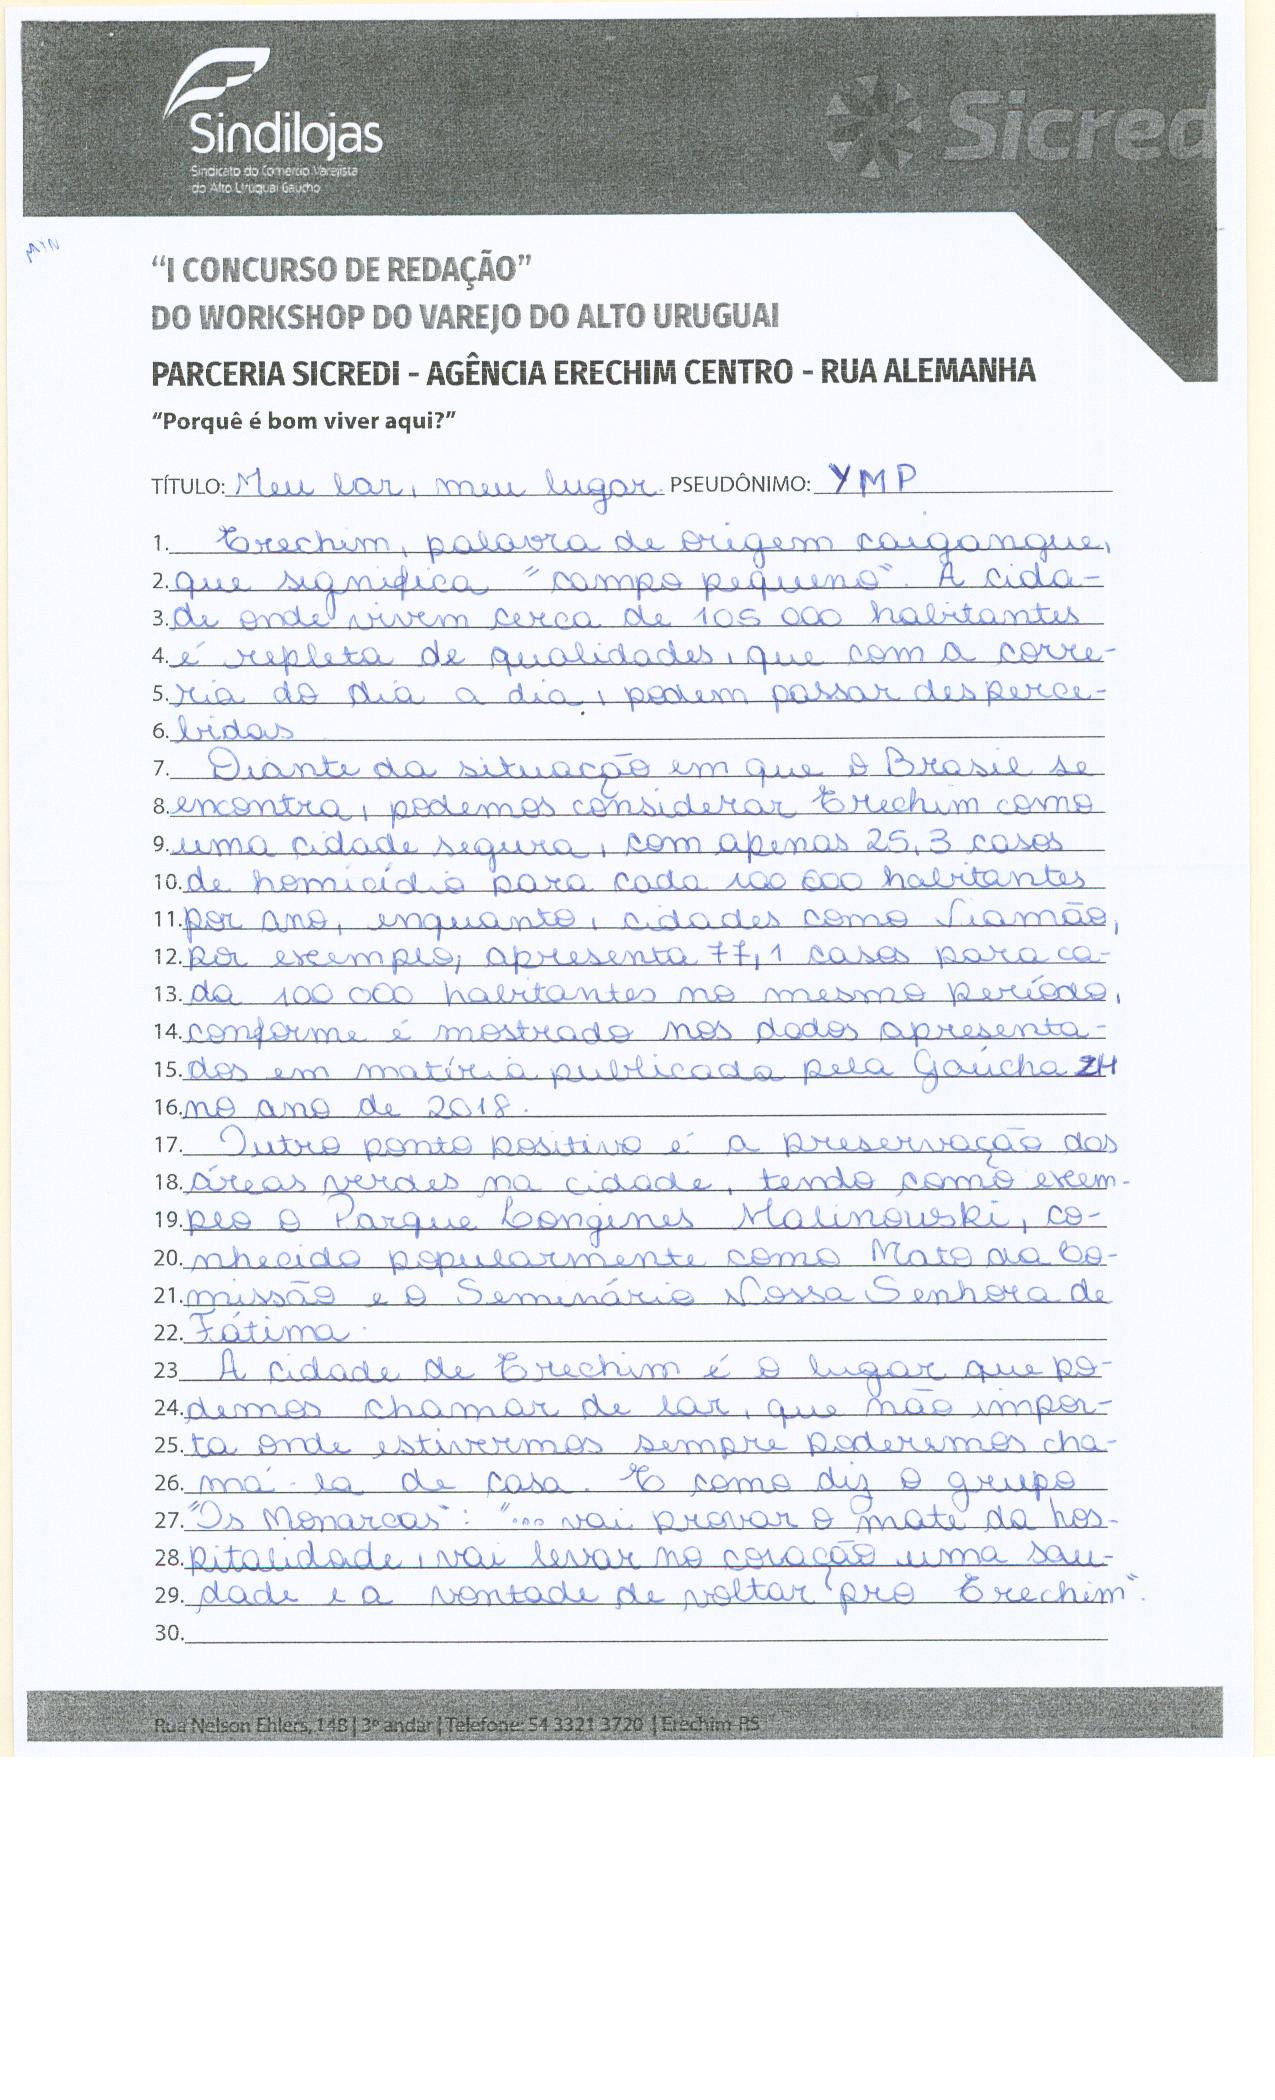 Sindilojas
Sindicato do Comércio Varejista
do Alto Uruguai Gaúcho
Sicred
“I CONCURSO DE REDAÇÃO”
DO WORKSHOP DO VAREJO DO ALTO URUGUAI
PARCERIA SICREDI - AGÊNCIA ERECHIM CENTRO - RUA ALEMANHA
“Porquê é bom viver aqui?”
TÍTULO: Meu lar, meu lugar. PSEUDÔNIMO: YMP
1. Erechim, palavra de origem caigangue,
2. que significa "campo pequeno". A cida-
3. de onde vivem cerca de 105 000 habitantes
4. é repleta de qualidades, que com a corre-
5. ria do dia a dia, podem passar desperce-
6. bidas
7. Diante da situação em que o Brasil se
8. encontra, podemos considerar Erechim como
9. uma cidade segura, com apenas 25,3 casos
10. de homicídio para cada 100 000 habitantes
11. por ano, enquanto, cidades como Viamão,
12. por exemplo, apresenta 77,1 casos para ca-
13. da 100 000 habitantes no mesmo período,
14. conforme é mostrado nos dados apresenta-
15. dos em matéria publicada pela Gaúcha ZH
16. no ano de 2018.
17. Outro ponto positivo é a preservação das
18. áreas verdes na cidade, tendo como exem-
19. plo o Parque Longines Malinowski, co-
20. nhecido popularmente como Mato da Co-
21. missão e o Seminário Nossa Senhora de
22. Fátima.
23 A cidade de Erechim é o lugar que po-
24. demos chamar de lar, que não impor-
25. ta onde estivermos sempre poderemos cha-
26. má-la de casa. E como diz o grupo
27. "Os Monarcas": "... vai provar o mate da hos-
28. pitalidade, vai levar no coração uma sau-
29. dade e a vontade de voltar pro Erechim".
30.
Rua Nelson Ehlers, 148 | 3º andar | Telefone: 54 3321 3720 | Erechim-RS